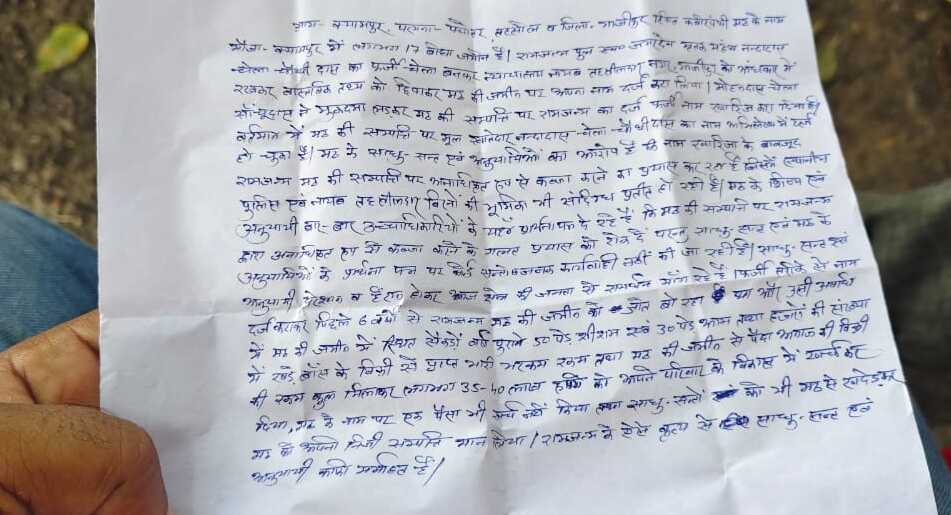 ग्राम- बयामपुर, परगना- पचोतर, तहसील व जिला- गाजीपुर स्थित कबीरपंथी मठ के नाम
मौजा- बयामपुर में लगभग 17 बीघा जमीन है। रामजन्म पुत्र स्व० जगरदेव मृतक महंथ नन्दादास
चेला- चौथी दास का फर्जी चेला बनकर न्यायालय नायब तहसीलदार नगर, गाजीपुर को अंधकार में
रखकर वास्तविक तथ्य को छिपाकर मठ की जमीन पर अपना नाम दर्ज करा लिया। मोहनदास चेला
साधूदास ने मुकदमा लड़कर मठ की सम्पत्ति पर रामजन्म का दर्ज फर्जी नाम खारिज करा दिया है।
वर्तमान में मठ की सम्पत्ति पर मूल खातेदार नन्दादास- चेला- चौथीदास का नाम अभिलेख में दर्ज
हो चुका है। मठ के साधु- सन्त एवं अनुयायियों का आरोप है कि नाम खारिजा के बावजूद
रामजन्म मठ की सम्पत्ति पर अनाधिकृत रूप से कब्जा करने का प्रयास कर रहा है जिसमें स्थानीय
पुलिस एवं नायब तहसीलदार विरनों की भूमिका भी संदिग्ध प्रतीत हो रही है। मठ के शिष्य एवं
अनुयायी बार- बार उच्चाधिकारियों के यहां प्रार्थनापत्र दे रहे हैं कि मठ की सम्पत्ति पर रामजन्म
द्वारा अनाधिकृत रूप से कब्जा करने के गलत प्रयास को रोक दें परन्तु साधु- सन्त एवं मठ के
अनुयायियों के प्रार्थना पत्र पर कोई सन्तोषजनक कार्यवाही नहीं की जा रही है। साधु- सन्त एवं
अनुयायी परेशान व हैरान होकर आज क्षेत्र की जनता से समर्थन मांग रहे हैं। फर्जी तरीके से नाम
दर्ज कराकर पिछले 6 वर्षों से रामजन्म मठ की जमीन को जोत बो रहा था और उसी अवधि
में मठ की जमीन में स्थित सैकड़ों वर्ष पुराने 50 पेड़ शीशम एवं 30 पेड़ आम तथा हजारों की संख्या
में खड़े बाँस के बिक्री से प्राप्त भारी भरकम रकम तथा मठ की जमीन से पैदा अनाज की बिक्री
की रकम कुल मिलाकर लगभग 35-40 लाख रूपये का अपने परिवार के विकास में खर्च कर
दिया, मठ के नाम पर एक पैसा भी खर्च नहीं किया तथा साधु- सन्तो को भी मठ से खदेड़कर
मठ को अपनी निजी सम्पत्ति मान लिया। रामजन्म के ऐसे कृत्य से साधु- सन्त एवं
अनुयायी काफी मर्माहत हैं।